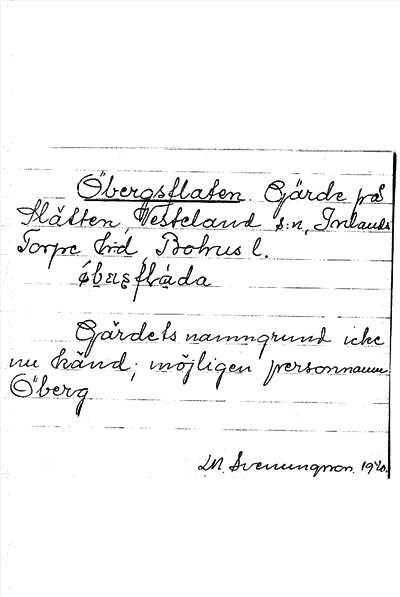 Öbergsflaten. Gärde på
Slätten, Vesterland s:n, Inlands
Torpe h:d, Bohus l.
flåda
Gärdets namngrund icke
nu känd; möjligen personnamn
Öberg
M. Svenungson. 1920.